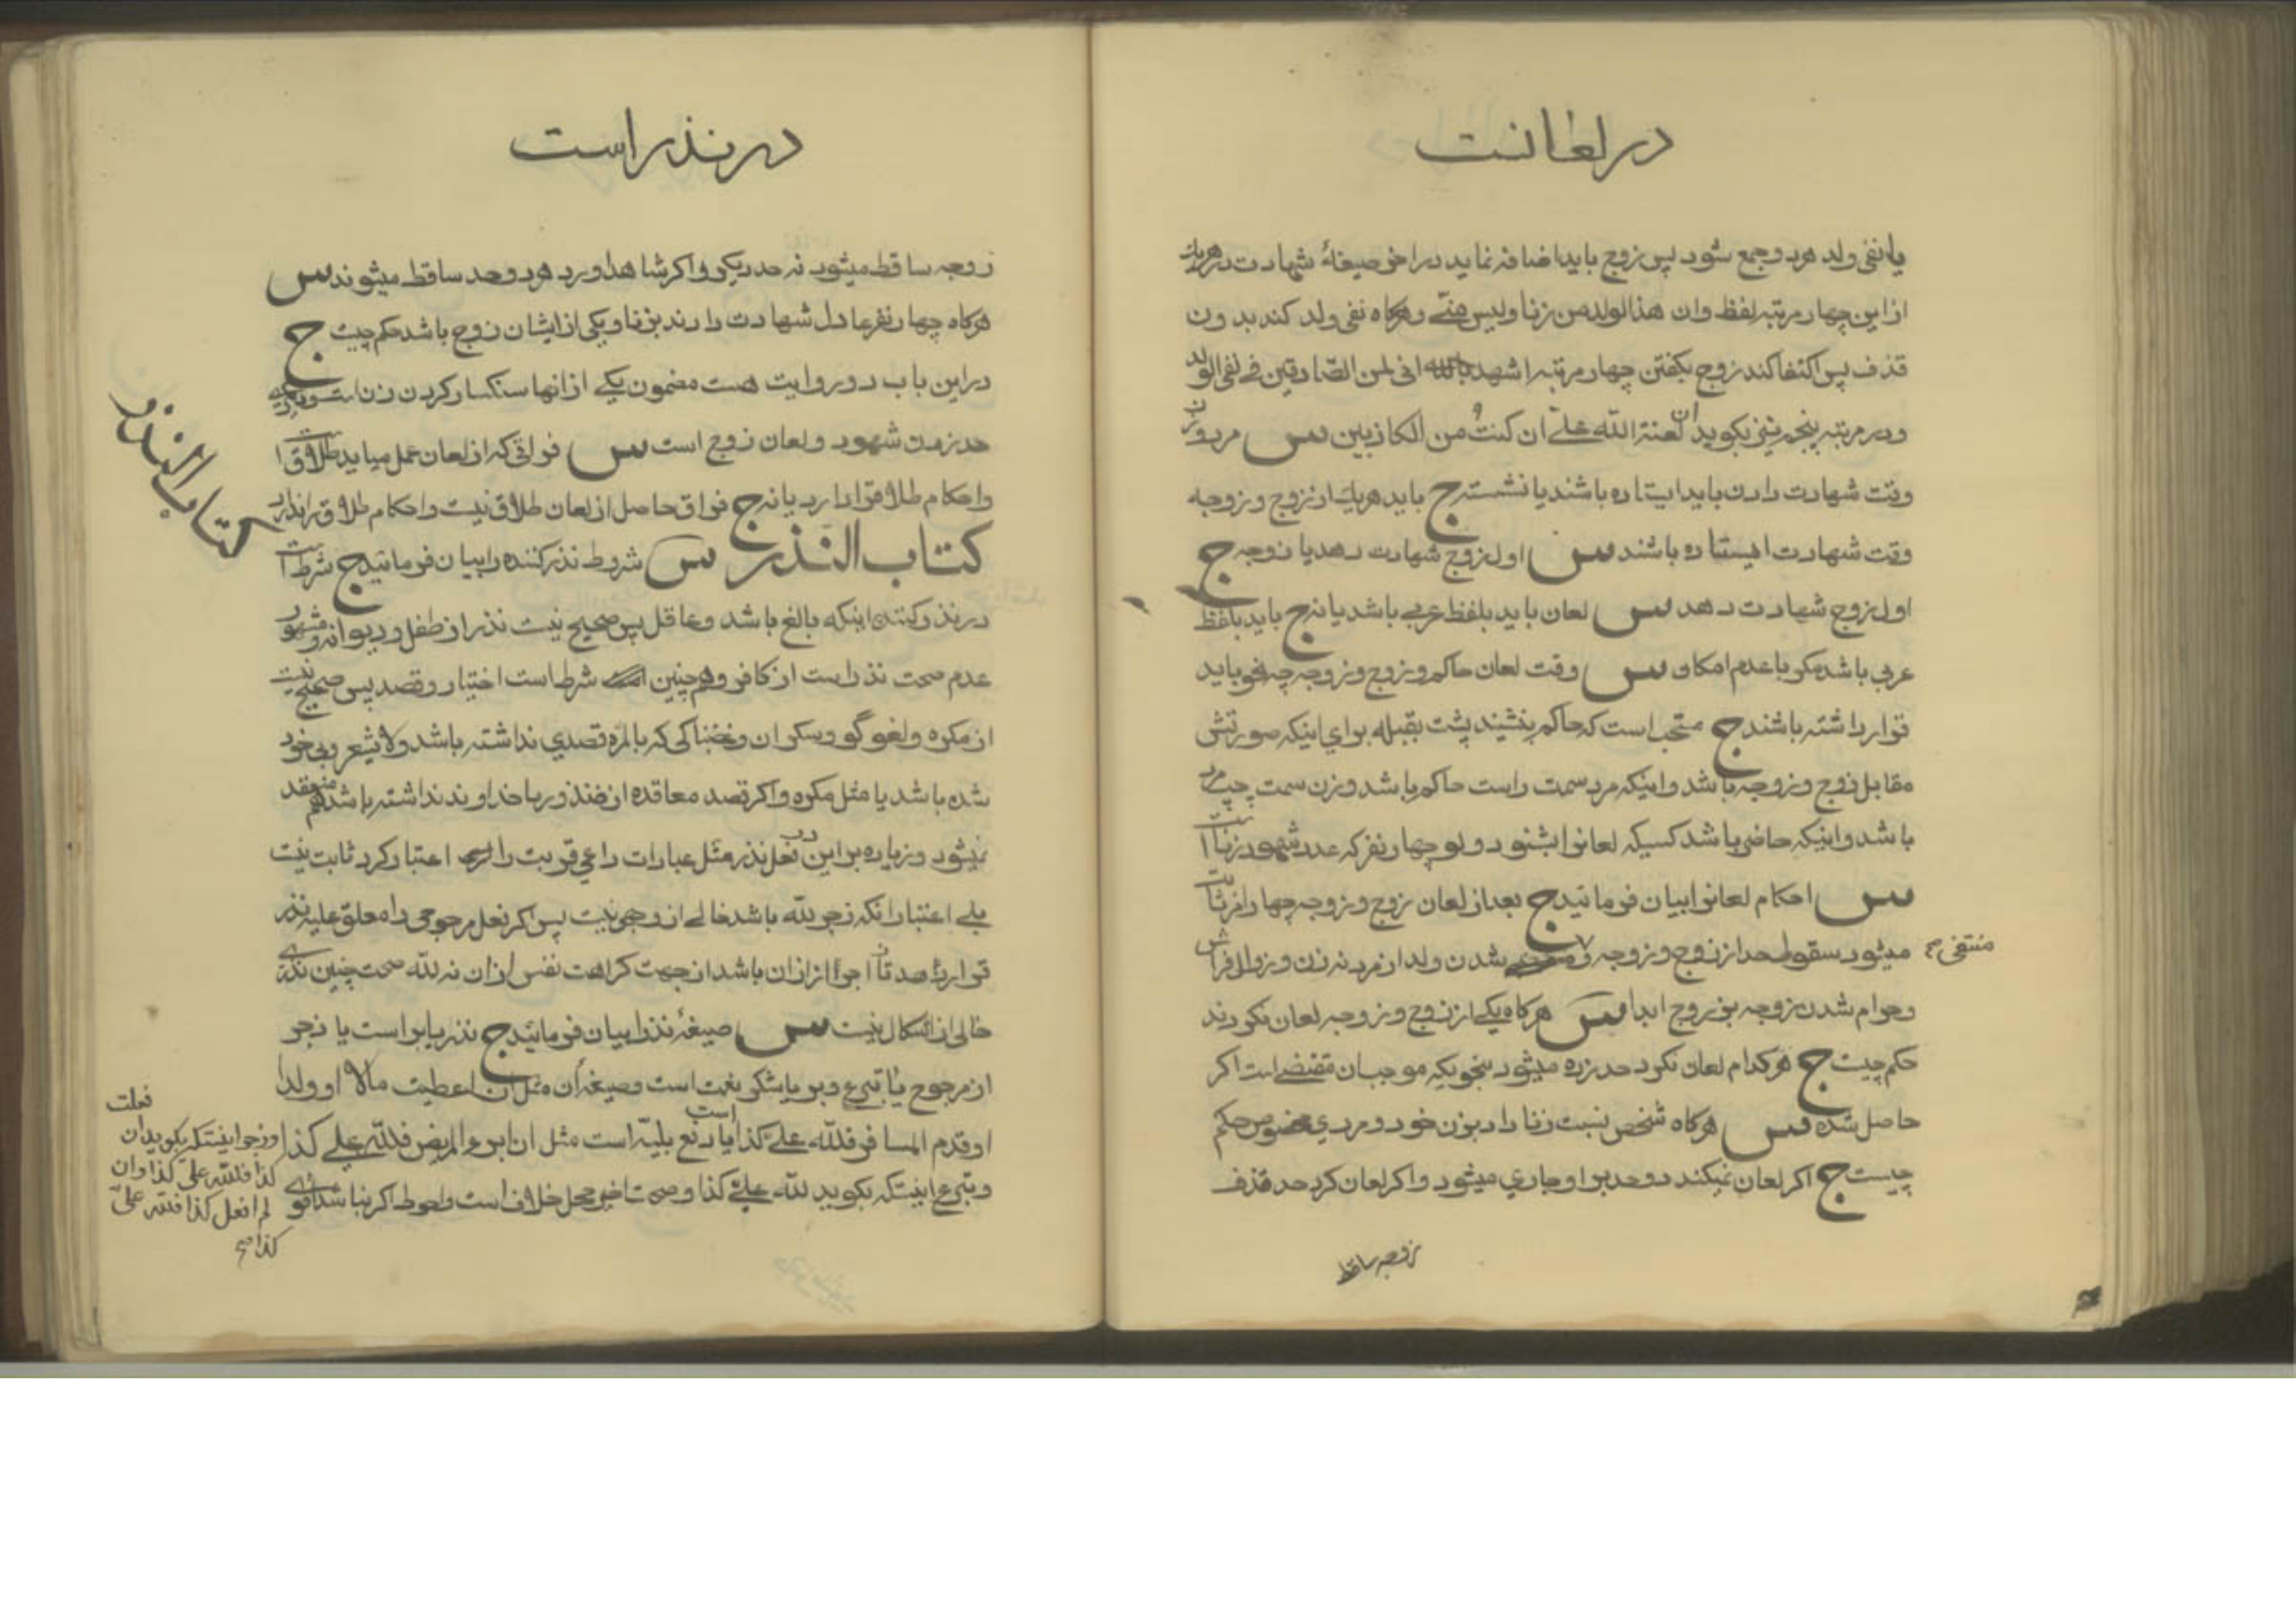 در لعانست
یا نفی ولد هر دو جمع شود پس زوج باید اضافه نماید در اخر صیغهٔ شهادت در هر یك
از این چهار مرتبه لفظ وان هذا لولد من زنا ولیس منّے وهرکاه نفی ولد کند بدون
قذف پس اکتفا کند زوج بکفتن چهار مرتبه اشهد بالله انی لمن الصّادقین فے نفی الولد
ودر مرتبه پنجم نیز بکوید ان لعنة الله علےّ ان کنتُ من الکاذبین س مرد وزن
وقت شهادت دادن باید ایستاده باشند یا نشسته ج باید هریك از زوج وزوجه
وقت شهادت ایستاده باشند س اول زوج شهادت دهد یا زوجه ج
اول زوج شهادت دهد س لعان باید بلفظ عربے باشد یا نه ج باید بلفظ
عربی باشد مکر با عدم امکان س وقت لعان حاکم وزوج وزوجه چه نحو باید
قرار داشته باشند ج مستحب است که حاکم بنشیند پشت بقبله برای اینکه صورتش
مقابل زوج وزوجه باشد واینکه مرد سمت راست حاکم باشد وزن سمت چپ مرد
باشد واینکه حاضر باشد کسیکه لعانرا بشنود ولو چهار نفر که عدد شهود زنا است
س احکام لعانرا بیان فرمائید ج بعد از لعان زوج وزوجه چهار اثر ثابت
میشود سقوط حد از زوج وزوجه و شدن ولد از مرد نه زن وزوال فراش
منتفی صح
وحرام شدن زوجه بزوج ابدا س هرکاه یکے از زوج وزوجه لعان نکردند
حکم چیست ج هرکدام لعان نکرد حد زده میشود بنحویکه موجب ان مقتضے است اکر
حاصل شده س هرکاه شخص نسبت زنا داد بزن خود ومردی مخصوص حکم
چیست ج اکر لعان نمیکند دو حد بر او جاری میشود واکر لعان کرد حد قذف
زوجه ساقط
در نذر است
زوجه ساقط میشود نه حد دیکری واکر شاهد اورد هر دو حد ساقط میشوند س
هرکاه چهار نفر عادل شهادت دادند بزنا ویکی از ایشان زوج باشد حکم چیست ج
در این باب دو روایت هست مضمون یکے از انها سنکسار کردن زن است ودیکرے
حد زدن شهود ولعان زوج است س فراقی که از لعان بعمل میاید طلاق است
واحکام طلاقرا دارد یا نه ج فراق حاصل از لعان طلاق نیست واحکام طلاق را ندارد
کتاب النذر س شروط نذر کننده را بیان فرمائید ج شرط است
کتاب النذر
در نذر کننده اینکه بالغ باشد وعاقل پس صحیح نیست نذر از طفل ودیوانه ومشهور
عدم صحت نذر است از کافر وهمچنین شرط است اختیار وقصد پس صحیح نیست
از مکره ولغو گو وسکران وغضبناکی که بالمره قصدی نداشته باشد ولا یشعر وبی خود
شده باشد یا مثل مکره واکر قصد معاقده از ضد وربا خداوند نداشته باشد هم منعقد
نمیشود وزیاده بر این در فعل نذر مثل عبارات داعی قربت را اعتبار کرد ثابت نیست
بلے اعتبار انکه زجر لله باشد خالے از وجهی نیست پس اکر فعل مرجوحی را معلق علیه نذر
قرار دهد تا اجر از ان باشد از جهت کراهت نفس از ان نه لله صحت چنین نذرے
خالی از اشکال نیست س صیغهٔ نذر را بیان فرمائید ج نذر یا بر است یا زجر
از مرجوح یا تبرع وبر یا شکر نعمت است وصیغهٔ ان مثل ان اعطیت مالا او ولدا
او قدم المسافر فلله علےّ کذا یا دفع بلیّه است مثل ان ابرء المریض فلله علےّ کذا
وزجر اینستکه بکوید ان فعلت کذا فلله علیّ کذا وان لم افعل کذا فلله علیّ کذا صح
وتبرع اینستکه بکوید لله علےّ کذا وصحت اخیر محل خلاف است واحوط اکر بنا شد